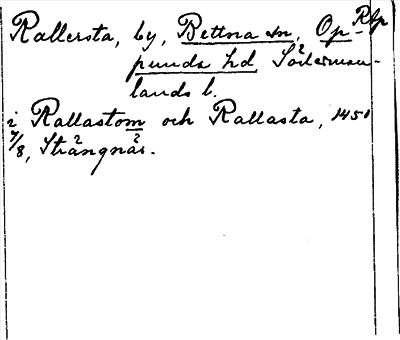 Rallersta, by, Bettna sn, Op- Rlp
punda hd Söderman-
lands l.
i Rallastom och Rallasta, 1450
7/8, Strängnäs.